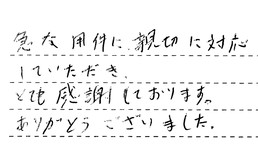 急な用件に親切に対応
していただき、
とても感謝しております。
ありがとうございました。